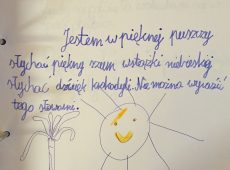 Jestem w pięknej puszczy
słychać piękny szum wstążki niebieskiej
słychać dźwięk krokodyli. Nie można wyrazić
tego słowami.